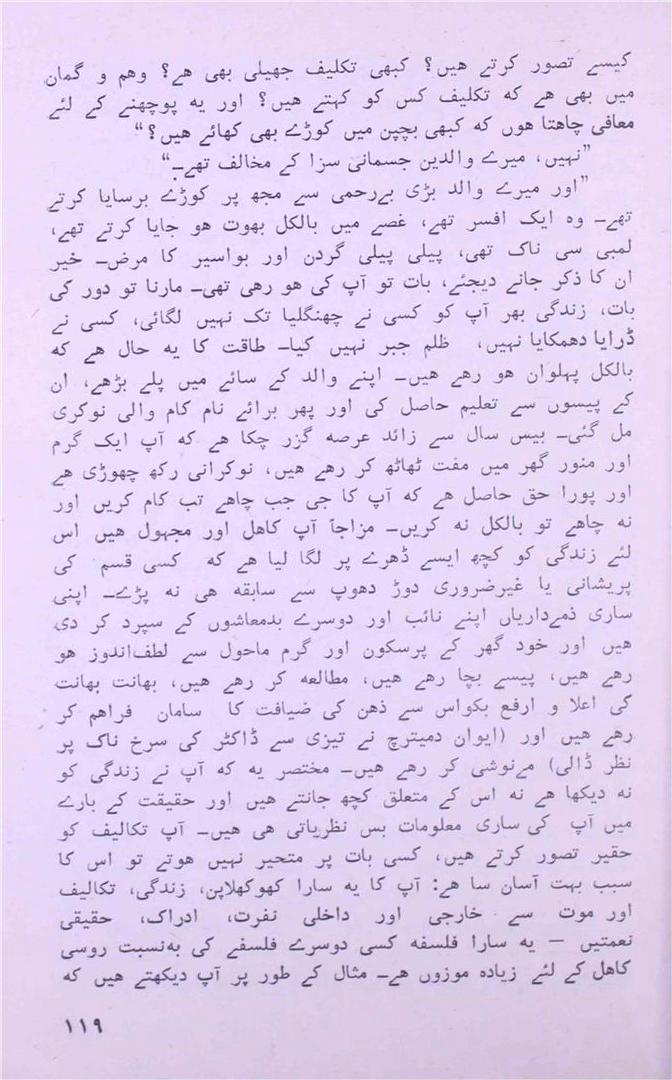 کیسے تصور کرتے هیں؟ کبھی تکلیف جھیلی بھی هے؟ وهم و گمان
میں بھی هے که تکلیف کس کو کہتے هیں؟ اور یه پوچھنے کے لئے
معافی چاهتا هوں که کبھی بچپن میں کوڑے بھی کھائے هیں؟“
”نہیں، میرے والدین جسمانی سزا کے مخالف تھے۔“
”اور میرے والد بڑی بےرحمی سے مجھ پر کوڑے برسایا کرتے
تھے۔ وہ ایک افسر تھے، غصے میں بالکل بھوت هو جایا کرتے تھے،
لمبی سی ناک تھی، پیلی پیلی گردن اور بواسیر کا مرض۔ خیر
ان کا ذکر جانے دیجئے، بات تو آپ کی هو رهی تھی۔ مارنا تو دور کی
بات، زندگی بھر آپ کو کسی نے چھنگلیا تک نہیں لگائی، کسی نے
ڈرایا دھمکایا نہیں، ظلم جبر نہیں کیا۔ طاقت کا یه حال هے که
بالکل پہلوان هو رهے هیں۔ اپنے والد کے سائے میں پلے بڑھے، ان
کے پیسوں سے تعلیم حاصل کی اور پھر برائے نام کام والی نوکری
مل گئی۔ بیس سال سے زائد عرصه گزر چکا هے که آپ ایک گرم
اور منور گھر میں مفت ٹھاٹھ کر رهے هیں، نوکرانی رکھ چھوڑی هے
اور پورا حق حاصل هے که آپ کا جی جب چاهے تب کام کریں اور
نه چاهے تو بالکل نه کریں۔ مزاجاً آپ کاهل اور مجہول هیں اس
لئے زندگی کو کچھ ایسے ڈھرے پر لگا لیا هے که کسی قسم کی
پریشانی یا غیرضروری دوڑ دھوپ سے سابقه هی نه پڑے۔ اپنی
ساری ذمےداریاں اپنے نائب اور دوسرے بدمعاشوں کے سپرد کر دی
هیں اور خود گھر کے پرسکون اور گرم ماحول سے لطف‌اندوز هو
رهے هیں، پیسے بچا رهے هیں، مطالعه کر رهے هیں، بھانت بھانت
کی اعلا و ارفع بکواس سے ذهن کی ضیافت کا سامان فراهم کر
رهے هیں اور (ایوان دمیترچ نے تیزی سے ڈاکٹر کی سرخ ناک پر
نظر ڈالی) مےنوشی کر رهے هیں۔ مختصر یه که آپ نے زندگی کو
نه دیکھا هے نه اس کے متعلق کچھ جانتے هیں اور حقیقت کے بارے
میں آپ کی ساری معلومات بس نظریاتی هی هیں۔ آپ تکالیف کو
حقیر تصور کرتے هیں، کسی بات پر متحیر نہیں هوتے تو اس کا
سبب بہت آسان سا هے: آپ کا یه سارا کھوکھلاپن، زندگی، تکالیف
اور موت سے خارجی اور داخلی نفرت، ادراک، حقیقی
نعمتیں — یه سارا فلسفه کسی دوسرے فلسفے کی به‌نسبت روسی
کاهل کے لئے زیادہ موزوں هے۔ مثال کے طور پر آپ دیکھتے هیں که
۱۱۹